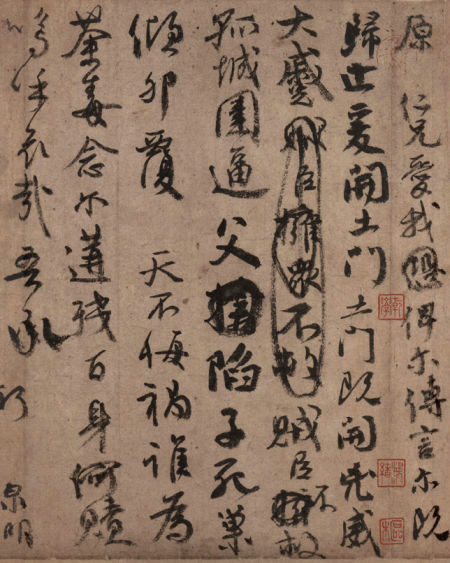 原 仁兄愛我恐俾尔傳言尔既
歸止爰開土門土門既開兇威
大蹙賊臣擁眾不救賊臣不救
孤城圍逼父陷子死巢
傾卵覆 天不悔禍誰為
荼毒念尔遘殘百身何贖
嗚呼哀哉吾承
泉明